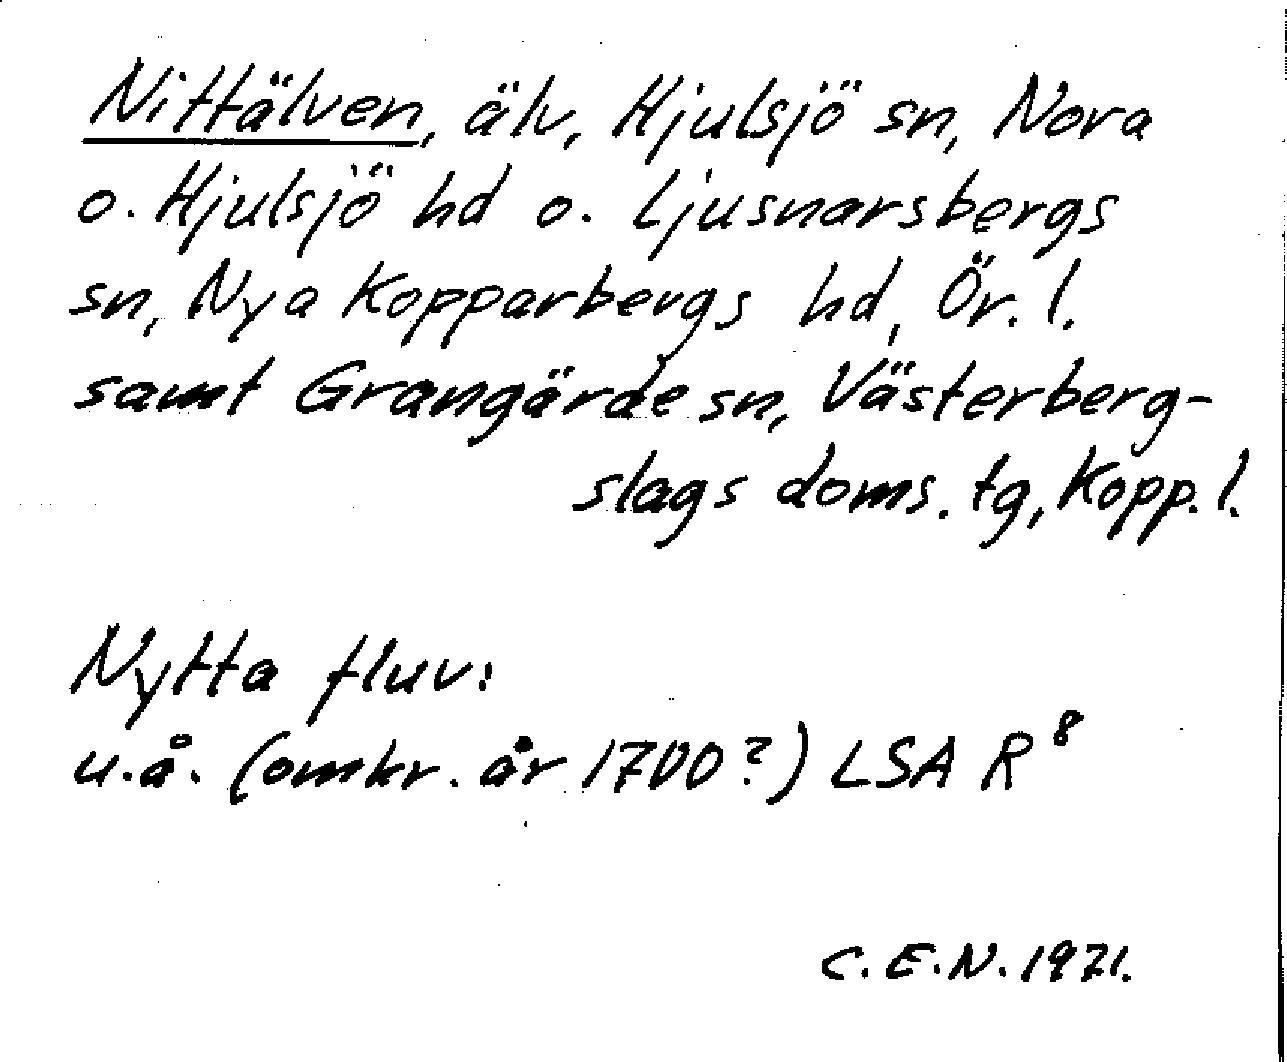 Nittälven, älv, Hjulsjö sn, Nora
o. Hjulsjö hd o. Ljusnarsbergs
sn, Nya Kopparbergs hd, Ör. l.
samt Grangärde sn, Västerberg-
slags doms. tg, Kopp. l.
Nytta fluv:
u.å. (omkr. år 1700?) LSA R⁸
C.E.N. 1971.